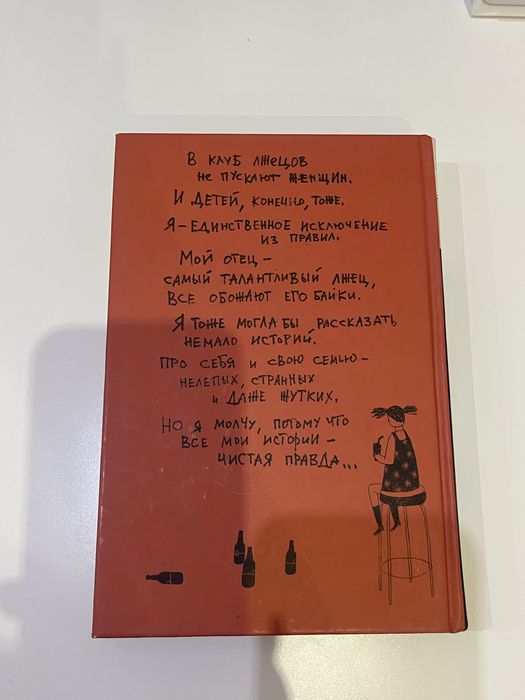 В КЛУБ ЛЖЕЦОВ
НЕ ПУСКАЮТ ЖЕНЩИН.
И ДЕТЕЙ, КОНЕЧНО, ТОЖЕ.
Я – ЕДИНСТВЕННОЕ ИСКЛЮЧЕНИЕ
ИЗ ПРАВИЛ.
МОЙ ОТЕЦ –
САМЫЙ ТАЛАНТЛИВЫЙ ЛЖЕЦ,
ВСЕ ОБОЖАЮТ ЕГО БАЙКИ.
Я ТОЖЕ МОГЛА БЫ РАССКАЗАТЬ
НЕМАЛО ИСТОРИЙ.
ПРО СЕБЯ И СВОЮ СЕМЬЮ –
НЕЛЕПЫХ, СТРАННЫХ
И ДАЖЕ ЖУТКИХ.
НО Я МОЛЧУ, ПОТОМУ ЧТО
ВСЕ МОИ ИСТОРИИ –
ЧИСТАЯ ПРАВДА...